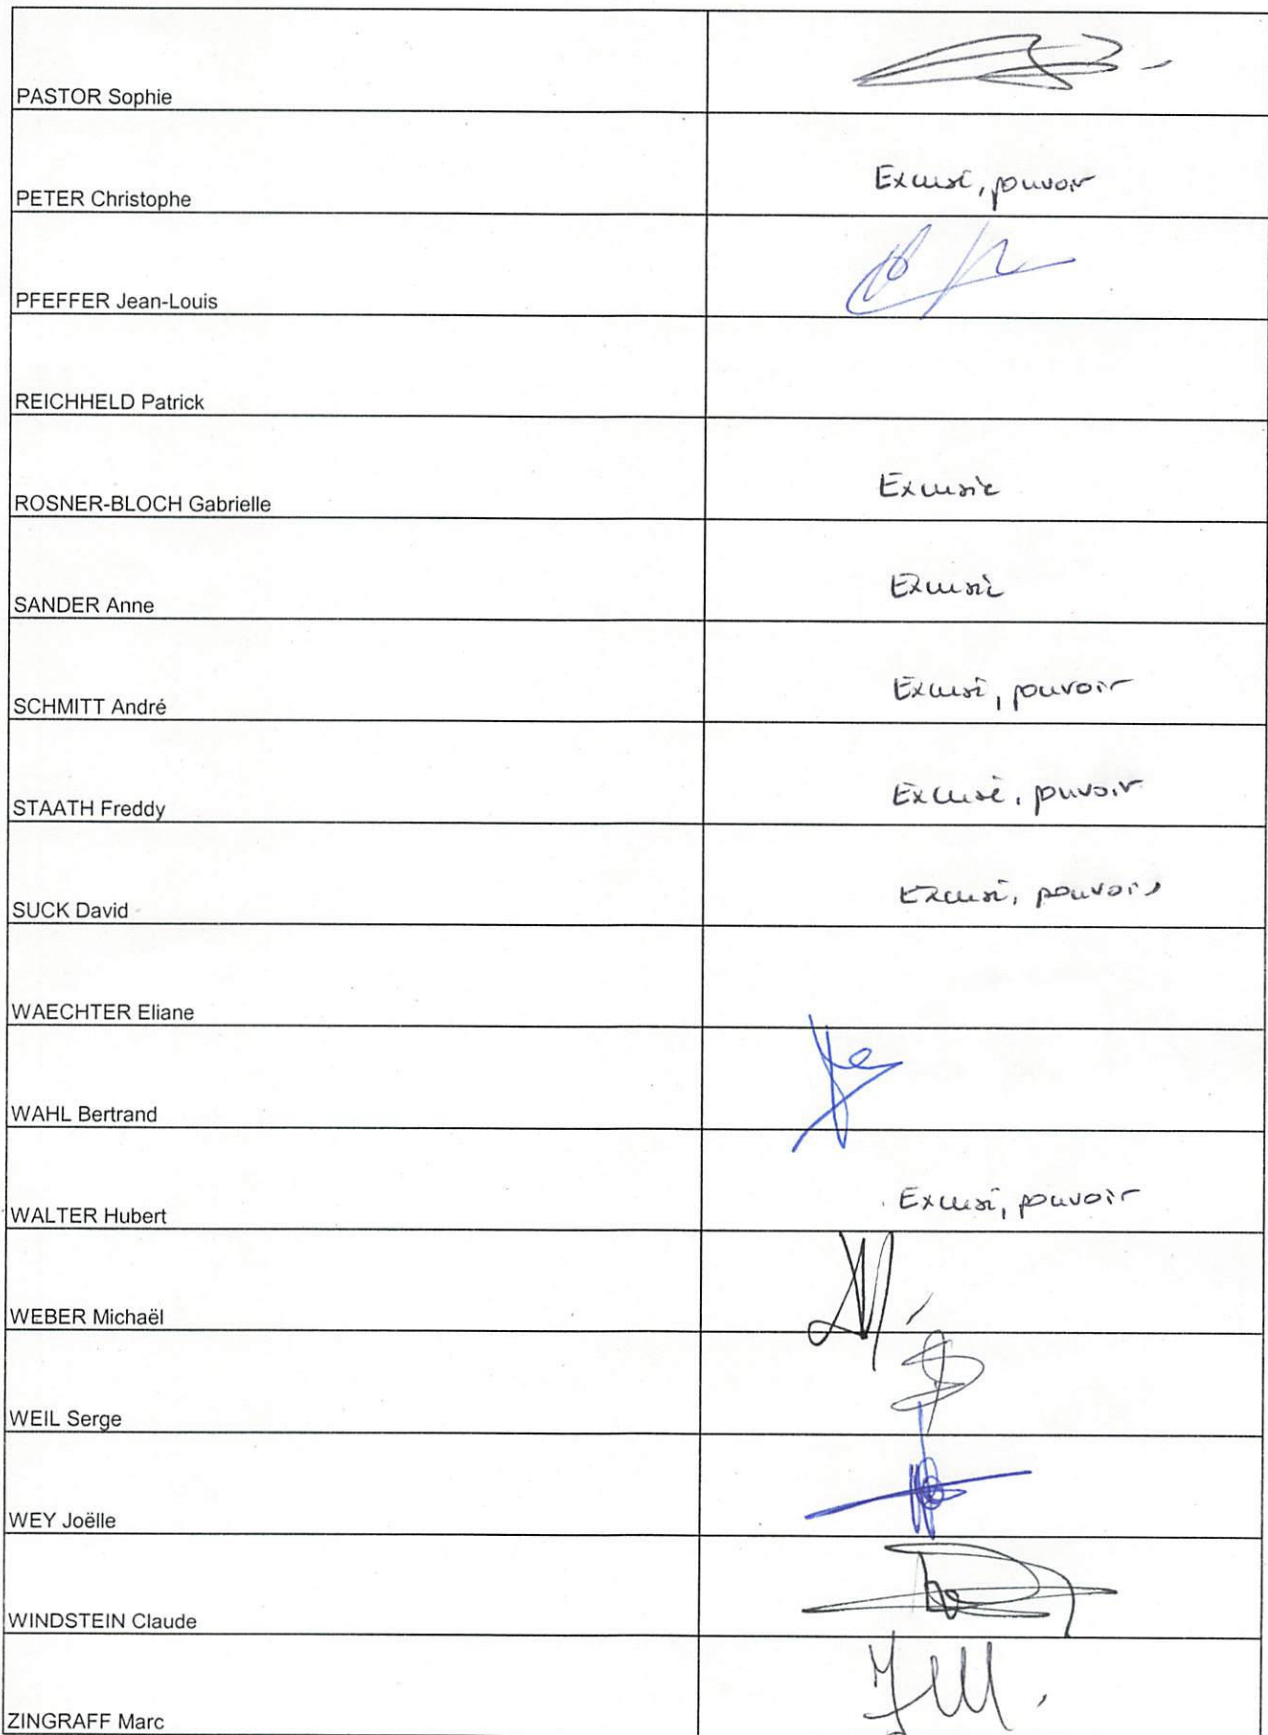 PASTOR Sophie
PETER Christophe
Excusé, pouvoir
PFEFFER Jean-Louis
REICHHELD Patrick
ROSNER-BLOCH Gabrielle
Excusée
SANDER Anne
Excusée
SCHMITT André
Excusé, pouvoir
STAATH Freddy
Excusé, pouvoir
SUCK David
Excusé, pouvoir
WAECHTER Eliane
WAHL Bertrand
WALTER Hubert
Excusé, pouvoir
WEBER Michaël
WEIL Serge
WEY Joëlle
WINDSTEIN Claude
ZINGRAFF Marc